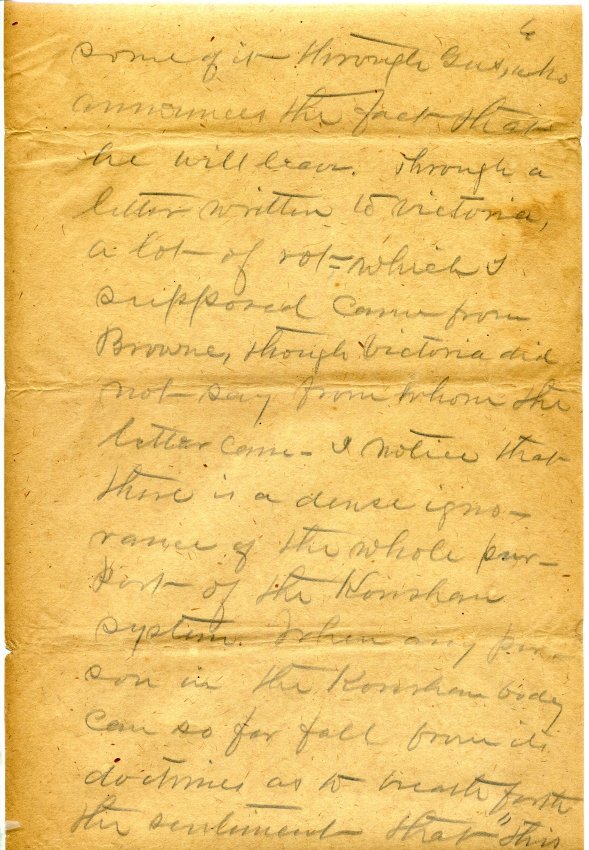 6
some of it through Gus, who
announces the fact that
he will leave. Through a
letter written to Victoria,
a lot of rot = which I
supposed came from
Browne, though Victoria did
not say from whom the
letter came - I notice that
there is a dense igno-
rance of the whole pur-
port of the Koreshan
system. When any per-
son in the Koreshan body
can so far fall from its
doctrines as to breathe forth
the sentiment that "this